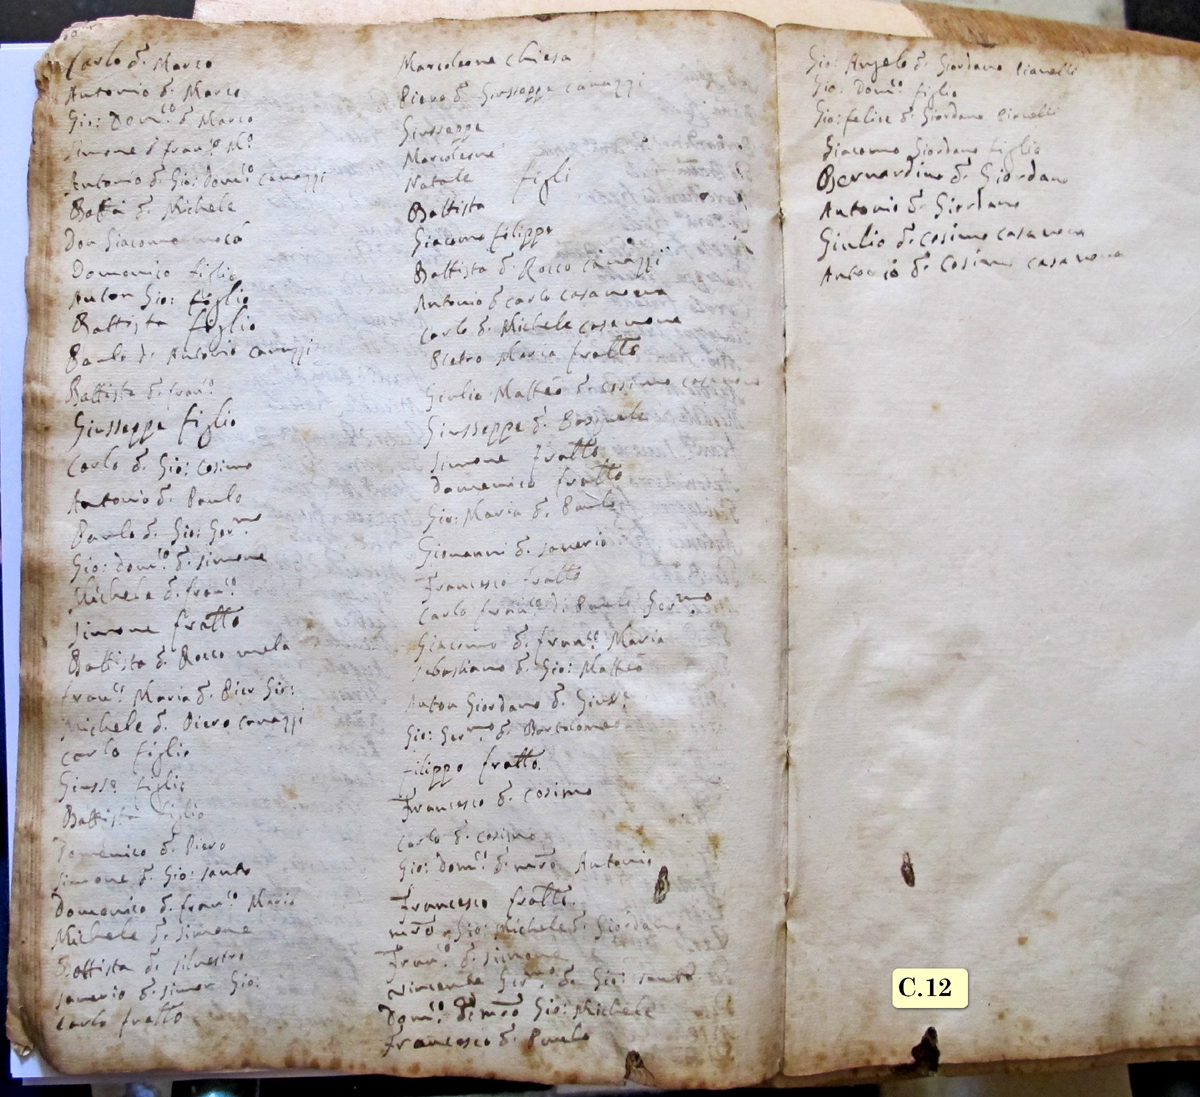 Carlo q. Marco
Antonio q. Marco
Gio: Dom.co q. Marco
Simone q. Fran.co M.a
Antonio q. Gio: Dom.co canazzi
Batta q. Michele
Don Giacomo
Domenico figlio
Anton Gio: figlio
Battista figlio
Paulo q. Antonio canazzi
Battista q. fran.co
Giusseppe figlio
Carlo q. Gio: Cosimo
Antonio q. Paulo
Paulo q. Gio: Ger.mo
Gio: dom.co q. simone
Michele q. fran.co
Simone fratto
Battista q. Rocco mela
fran.co Maria q. Pier Gio:
Michele q. Piero canazzi
carlo figlio
Giuss.e figlio
Battista figlio
Domenico q. Piero
Simone q. Gio: santo
Domenico q. fran.co Maria
Michele q. simone
Battista q. silvestro
saverio q. simon Gio:
Carlo fratto
Marcoleone chiesa
Piero q. Giusseppe canazzi
Giusseppe
Marcoleone
Natale figli
Battista
Giacomo filippo
Battista q. Rocco canazzi
Antonio q. carlo casanova
Carlo q. Michele casanova
Pietro Maria fratto
Giulio Matteo q. cosimo casanova
Giusseppe q. Pasquale
Simone fratto
Domenico fratto
Gio: Maria q. Paulo
Giovanni q. saverio
Francesco fratto
Carlo fran.co di Paulo Ger.mo
Giacomo q. fran.co Maria
sebastiano q. Gio: Matteo
Anton Giordano q. Giuss.e
Gio: Ger.mo q. Bartolomeo
Filippo fratto
Francesco q. cosimo
Carlo q. cosimo
Gio: dom.co q. mro Antonio
Francesco fratto
mro Gio: Michele q. Giordano
Fran.co q. simone
vincente Ger.mo q. Gio: santo
Dom.co q. mro Gio: Michele
Francesco q. Paulo
Gio: Angelo q. Giordano
Gio: Dom.co figlio
Gio: felice q. Giordano
Giacomo Giordano figlio
Bernardino q. Giordano
Antonio q. Giordano
Giulio q. cosimo casanova
Antonio q. Cosimo casanova
C.12